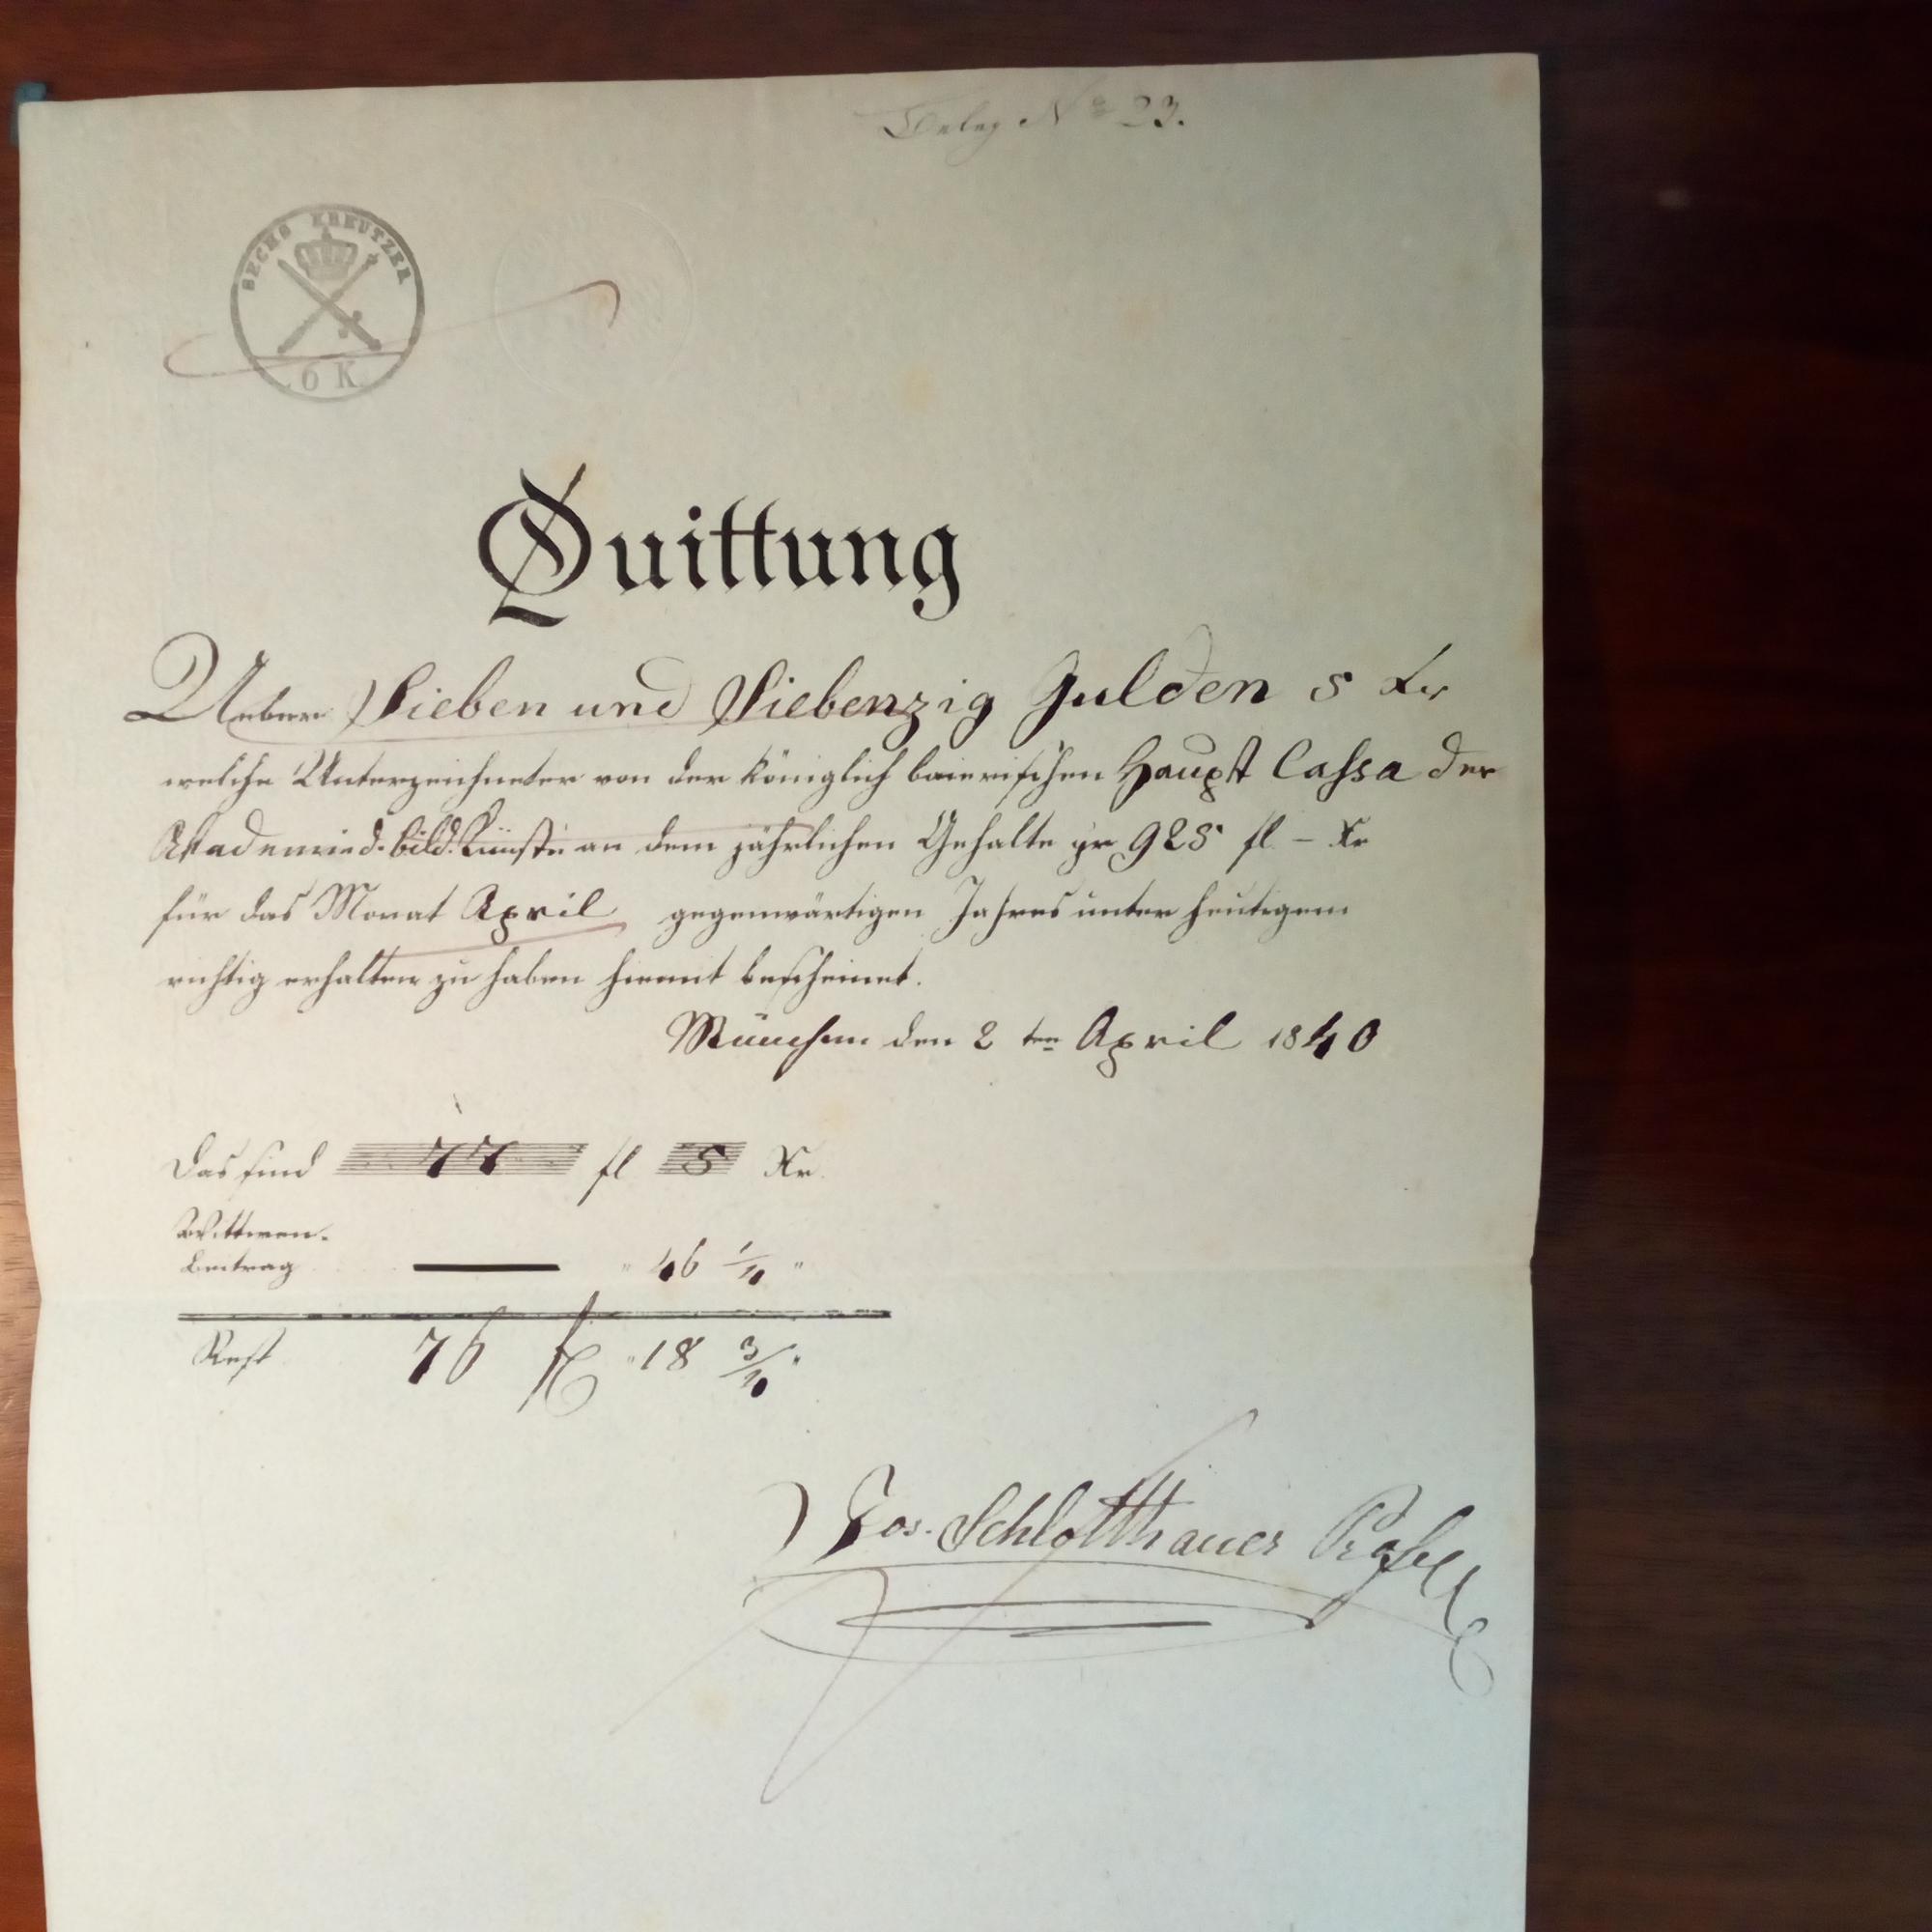 Beleg No 23.
SECHS KREUTZER
6 K
Quittung
Ueber Sieben und Siebenzig Gulden 5 Xr
welche Unterzeichneter von der königlich baierischen Haupt Cassa der
Akademie d. bild. Künste an dem jährlichen Gehalte pr 925 fl – Xr
für das Monat April gegenwärtigen Jahres unter heutigem
richtig erhalten zu haben hiemit bescheinet.
München den 2 ten April 1840
Das sind 77 fl 5 Xr.
Wittwen-
beitrag — " 46 7/10 "
Rest 76 fl " 18 3/10 "
Jos. Schlotthauer Profess